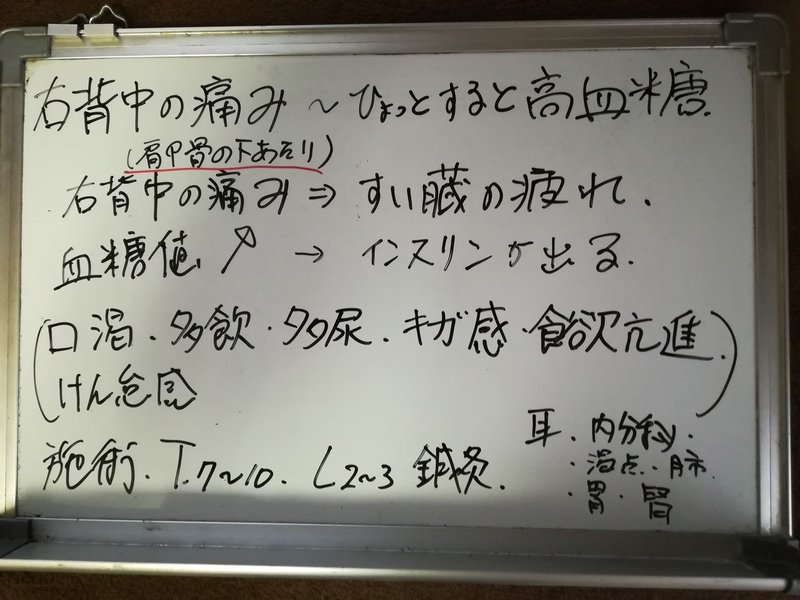 右背中の痛み～ひょっとすると高血糖.
(肩甲骨の下あたり)
右背中の痛み⇒すい臓の疲れ.
血糖値↗→インスリンが出る.
(口渇・多飲・多尿・キガ感・食欲亢進.
けん怠感)
施術. T.7~10. L2~3 鍼灸.
耳・内分泌・
・渇点・膵
・胃・